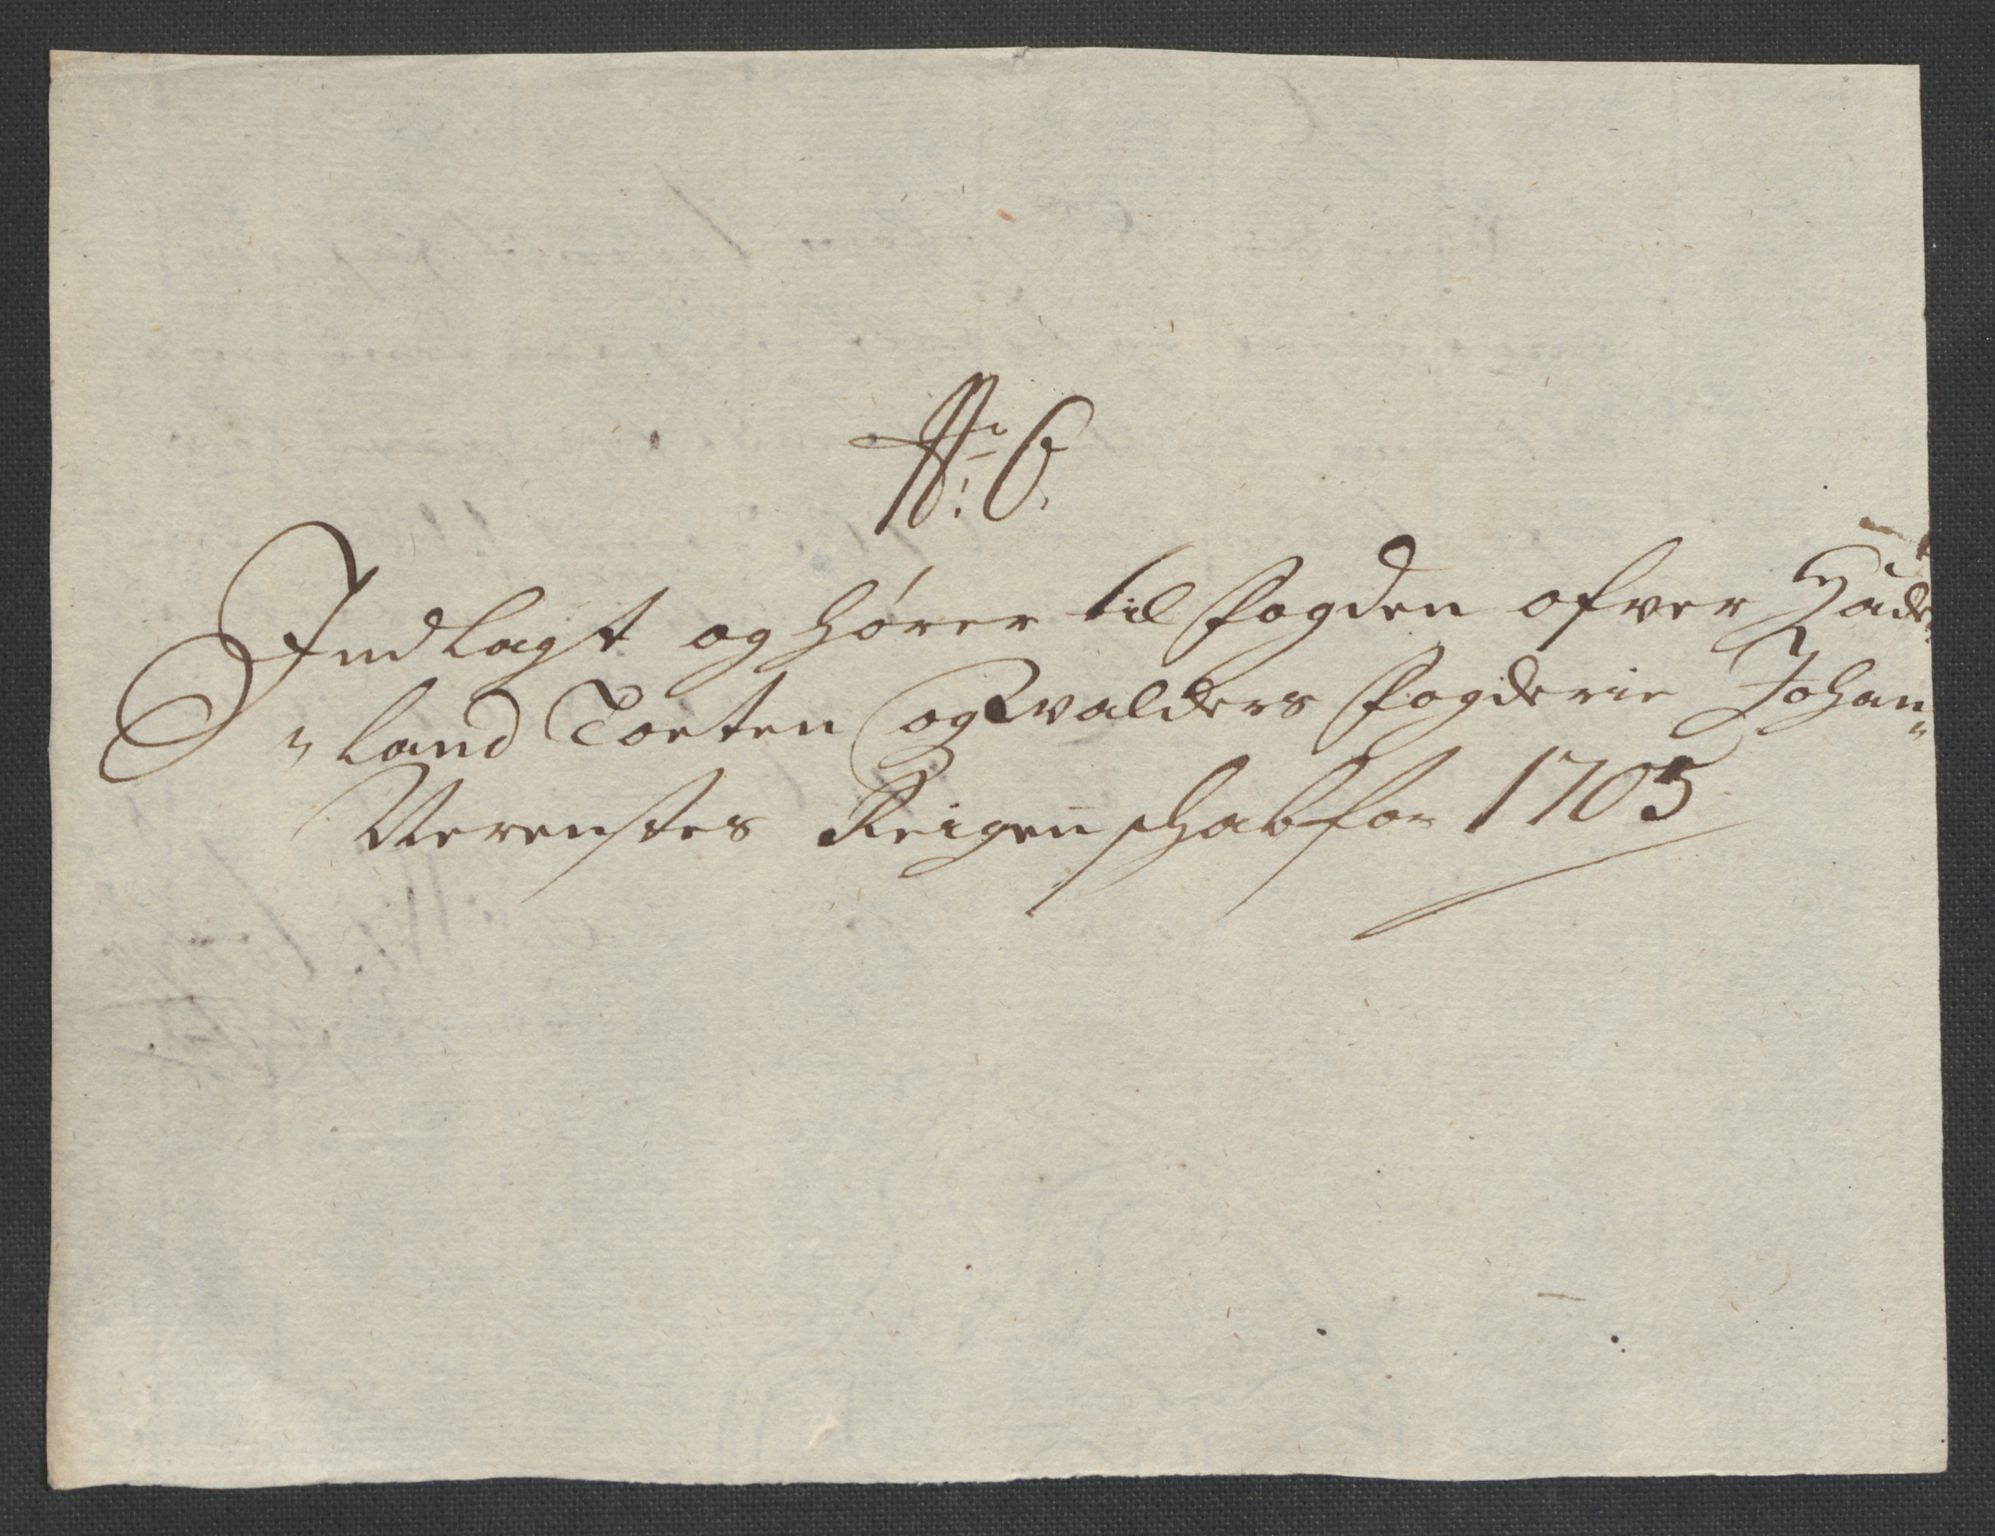 No: 6.
Indlagt og hører til fogden ofver Hade-
-land Toeten og Valders fogderie Johan
Verenstes Reigenschab for 1705